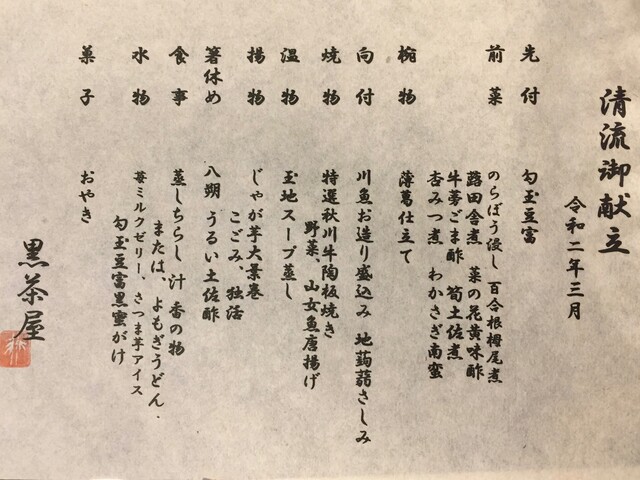 清流御献立
令和二年三月
先付 勾玉豆富
前菜 のらぼう浸し 百合根栂尾煮
蕗田舎煮 菜の花黄味酢
牛蒡ごま酢 筍土佐煮
杏みつ煮 わかさぎ南蛮
椀物 薄葛仕立て
向付 川魚お造り盛込み 地蒟蒻さしみ
焼物 特選秋川牛陶板焼き
野菜、山女魚唐揚げ
温物 玉地スープ蒸し
揚物 じゃが芋大景巻
こごみ、独活
箸休め 八朔 うるい土佐酢
食事 蒸しちらし 汁 香の物
または、よもぎうどん.
水物 苺ミルクゼリー、さつま芋アイス
勾玉豆富黒蜜がけ
菓子 おやき
黒茶屋